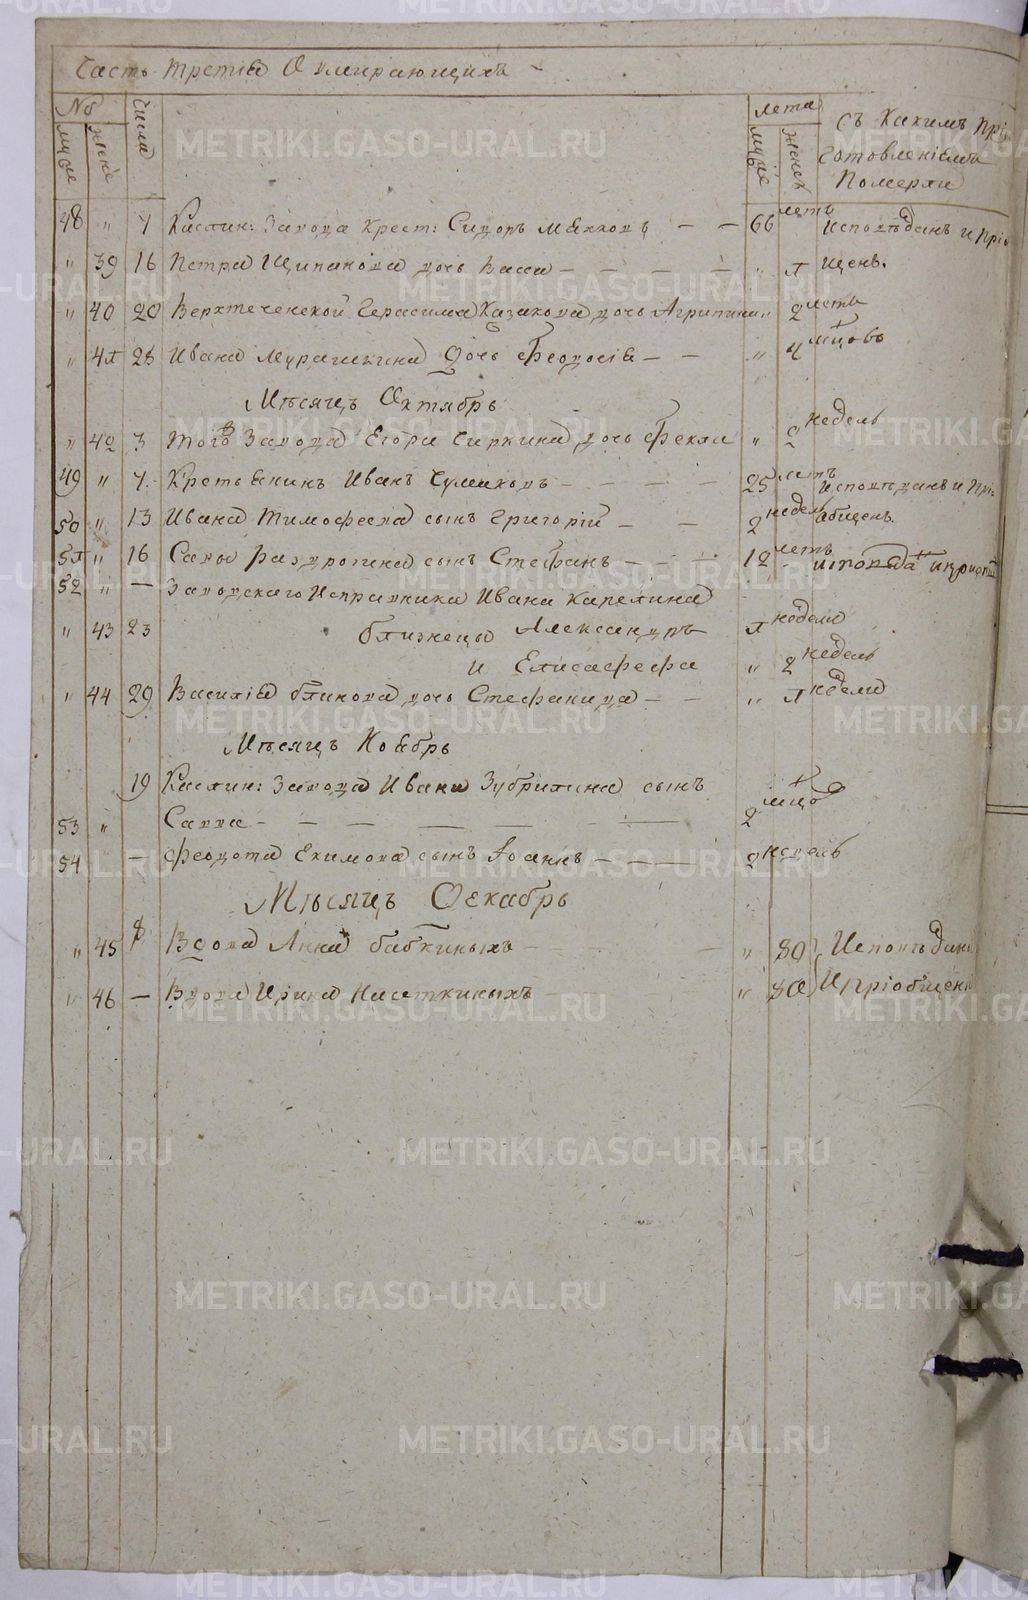 Часть третія О умирающихъ
№ числа лета Съ какимъ прі
муже женс муже женск готовленіемъ
померли
48 " 7 Каслин: Завода Крест: Сидоръ 66 летъ исповѣданъ и прі
" 39 16 Петра Щипанова дочь Васса " 1 щенъ.
" 40 20 Верхтеченской Герасима Казакова дочь Агрипина " 2 летъ
" 41 28 Ивана Мурашкина дочь Феодосія " 4 мцовъ
Мѣсяцъ Октябрь
" 42 3 Того Завода Егора Сиркина дочь Фекла " 2 недель
49 " 7. Крестьянинъ Иванъ 25 летъ исповѣданъ и прі
50 " 13 Ивана Тимофеева сынъ Григорій 2 недель общенъ.
51 " 16 Савы сынъ Стефанъ 12 летъ
52 " — Заводскаго Исправника Ивана Карелина
" 43 23 близнецы Александръ 1 недели
и Елисафефа " 2 недель
" 44 29 Василія Блинова дочь Стефанида " 1 недели
Мѣсяцъ Ноябрь
19 Каслин: Завода Ивана Зубрилина сынъ
53 " Савва 2 мцо
54 — Феодота Екимова сынъ Іоаннъ 2 недель
Мѣсяцъ Декабрь
" 45 8. Вдова Анна Бабкиныхъ " 80 Исповѣдан
" 46 — Вдова Ирина Насеткиныхъ " 80 И пріобщен
METRIKI.GASO-URAL.RU